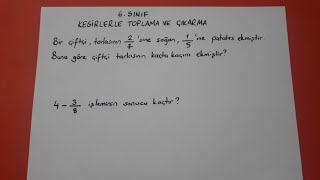 6. SINIF
KESİRLERLE TOPLAMA VE ÇIKARMA
Bir çiftçi, tarlasının 2/7 'sine soğan, 1/5 'ine patates ekmiştir.
Buna göre çiftçi tarlasının kaçta kaçını ekmiştir?
4 - 3/8 işleminin sonucu kaçtır?